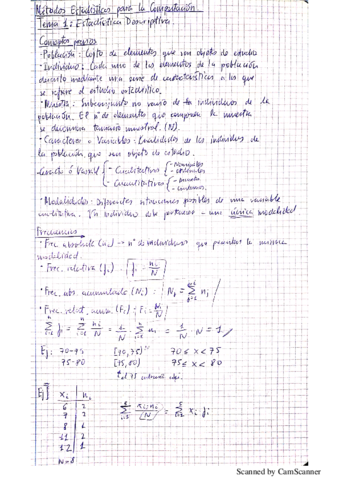 Métodos Estadísticos para la Computación
Tema 1: Estadística Descriptiva.
Conceptos previos
· Población: Cjto de elementos que son objeto de estudio
· Individuo: Cada uno de los elementos de la población
descrito mediante una serie de características a los que
se refiere el estudio estadístico.
· Muestra: Subconjunto no vacío de los individuos de la
población. El nº de elementos que componen la muestra
se denomina tamaño muestral (N).
· Caracteres o Variables: Cualidades de los individuos de
la población que son objeto de estudio.
- Cualitativos - Nominales
- Ordinales
- Cuantitativos
· Modalidades: Diferentes situaciones posibles de una variable
estadística. Un individuo sólo pertenece a una única modalidad
Frecuencias
· Frec. absoluta (ni) → nº de individuos que presentan la misma
modalidad.
· Frec. relativa (fi): fi = ni/N
· Frec. abs. acumulada (Ni):
· Frec. relat. acum. (Fi): Fi = Ni/N
Ej: 70-75 [70,75) 70 ≤ x < 75
75-80 [75,80) 75 ≤ x < 80
Ej xi ni
6 2
7 3
12 1
N=8
Scanned by CamScanner